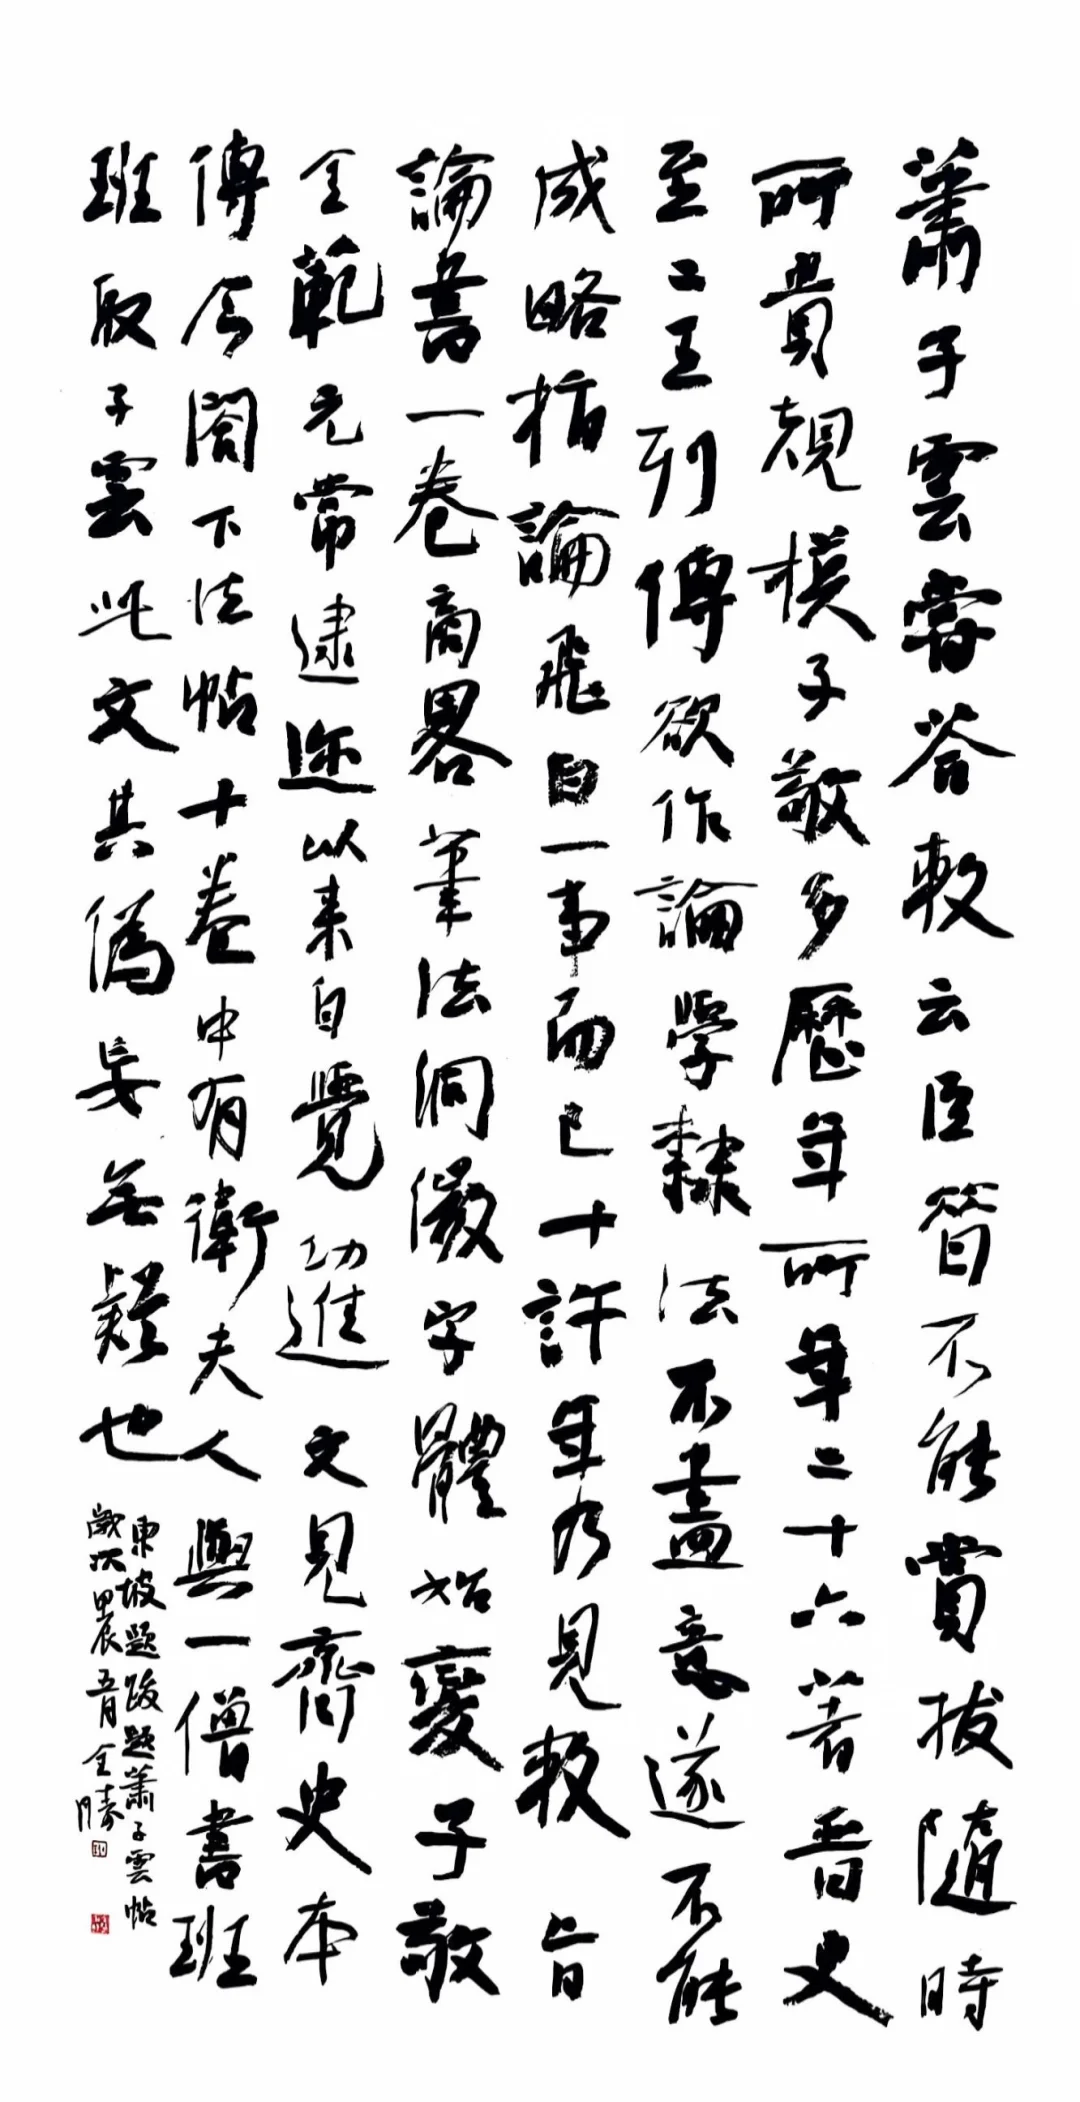 蕭子雲嘗答敕云臣昔不能賞拔隨時
所貴規模子敬多歷年所年二十六著晉史
至二王列傳欲作論學隸法不盡意遂不能
成略指論飛白一事而已十許年乃見敕旨
論書一卷商畧筆法洞徹字體始變子敬
全範元常逮邇以来自覺功進文見齊史本
傳今閣下法帖十卷中有衛夫人與一僧書班
班取子雲此文其偽妄無疑也
東坡題跋題蕭子雲帖
歲次甲辰五月全勝